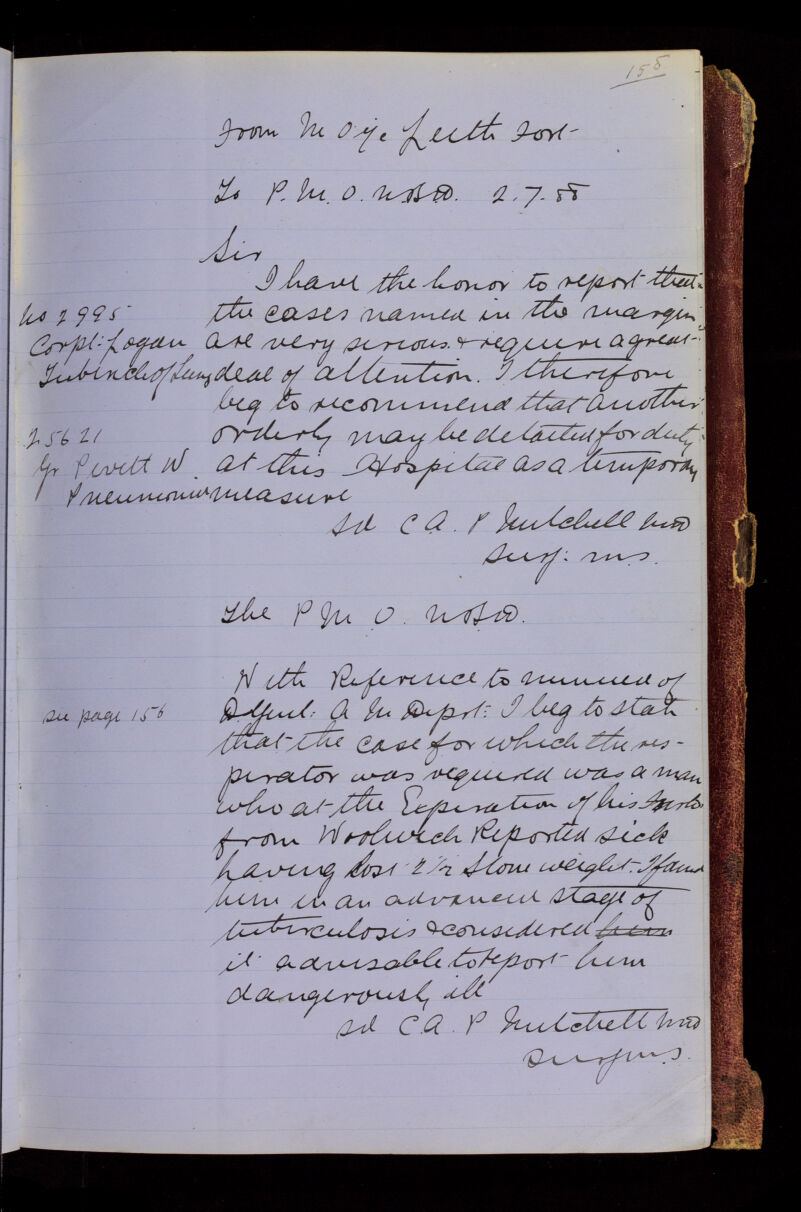 158
From M O i/c Leith Fort
To P. M. O. N.B.D. 2.7.88
Sir
I have the honor to report that
No 2995
the cases named in the margin
Corpl: Logan
are very serious & require a great
Tubercle of Lung
deal of attention. I therefore
beg to recommend that another
25621
orderly may be detailed for duty
Gr Pevett W
at this Hospital as a temporary
Pneumonia
measure
sd C A. P Mitchell MD
Surg: M.S.
The P M O. N.B.D.
With Reference to minute of
see page 156
D. Genl: A M Dept: I beg to state
that the case for which the res-
pirator was required was a man
who at the Expiration of his Furlo
from Woolwich Reported sick
having lost 2 1/2 Stone weight. I found
him in an advanced stage of
tuberculosis & considered him
it advisable to report him
dangerously ill
sd C A. P Mitchell MD
Surg M.S.